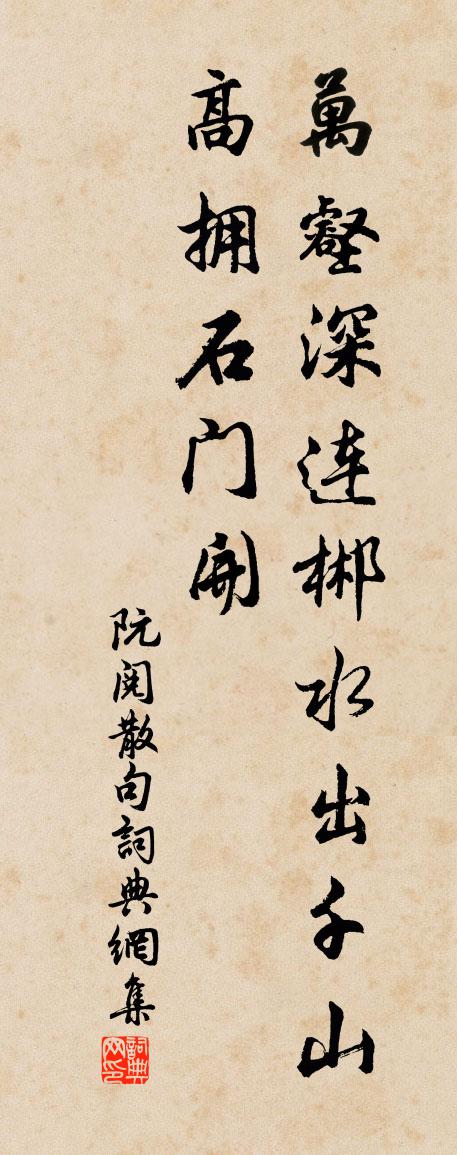 萬壑深連郴水出千山
高拥石门開
阮阅散句詞典網集
詞典网印